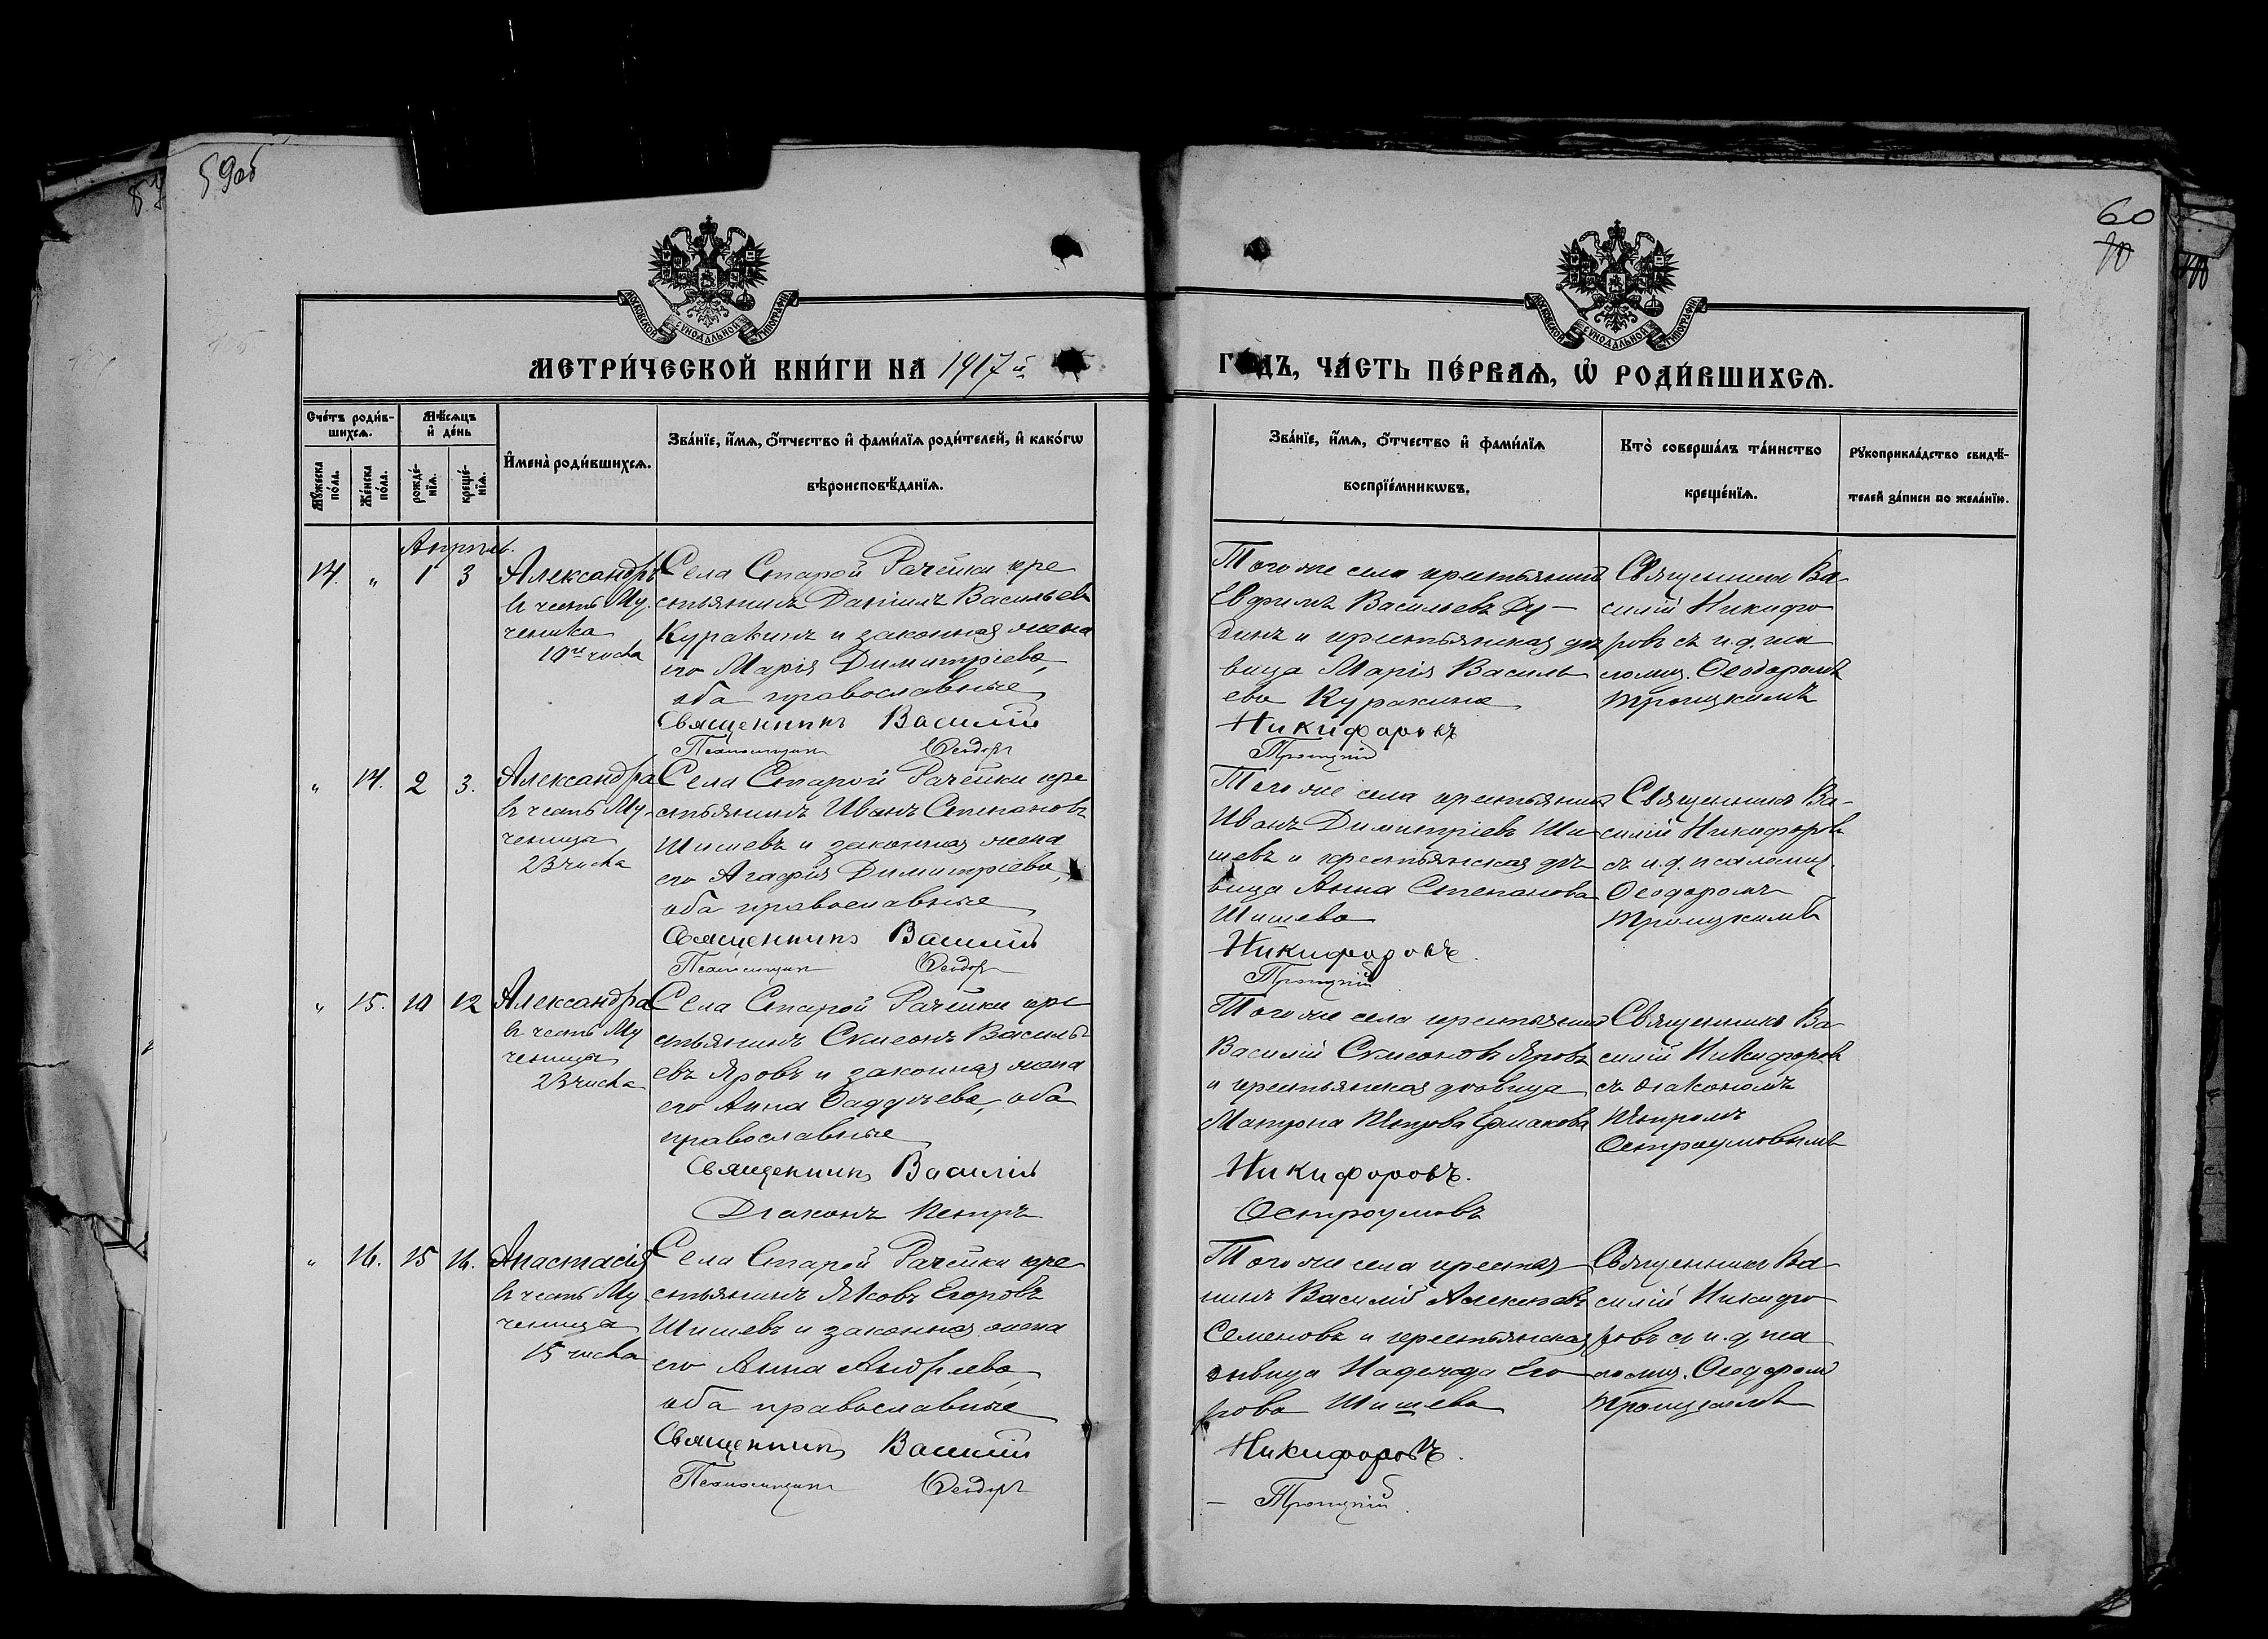 59об
60
70
МОСКОВСКОЙ СѴНОДАЛЬНОЙ ТИПОГРАФІИ
МОСКОВСКОЙ СѴНОДАЛЬНОЙ ТИПОГРАФІИ
МЕТРИ́ЧЕСКОЙ КНИ́ГИ НА 1917 й
ГОДЪ, ЧА́СТЬ ПЕ́РВАѦ, Ѡ҆ РОДИ́ВШИХСѦ.
Сче́тъ роди́в-
шихсѧ.
Мѣ́сѧцъ
и҆ де́нь
Мꙋ́жеска по́ла.
Же́нска по́ла.
рожде́-
нїѧ.
креще́-
нїѧ.
И҆мена̀ роди́вшихсѧ.
Зва́нїе, и҆́мѧ, ѻ҆́тчество и҆ фами́лїѧ роди́телей, и҆ како́гѡ
вѣроисповѣ́данїѧ.
Зва́нїе, и҆́мѧ, ѻ҆́тчество и҆ фами́лїѧ
воспрїе́мникѡвъ.
Кто̀ соверша́лъ та́инство
креще́нїѧ.
Рꙋкоприкла́дство свидѣ́-
телей за́писи по жела́нїю.
Апрѣль.
14. " 1 3
Александръ
въ честь Му-
ченика
10го числа
Села Старой Рачейки кре
стьянинъ Даніилъ Васильевъ
Куракинъ и законная жена
его Марія Димитріева,
оба православные
Священникъ Василій
Псаломщикъ Ѳеодоръ
Того же села крестьянинъ
Евфимъ Васильевъ Ду-
динъ и крестьянская дѣ
вица Марія Василь
ева Куракина
Никифоровъ
Троицкій
Священникъ Ва-
силій Никифо
ровъ съ и.д. пса
ломщ. Ѳеодоромъ
Троицкимъ
" 14. 2 3.
Александра
въ честь Му-
ченицы
23 числа
Села Старой Рачейки кре
стьянинъ Иванъ Степановъ
Шишевъ и законная жена
его Агафія Димитріева,
оба православные
Священникъ Василій
Псаломщикъ Ѳеодоръ
Того же села крестьянинъ
Иванъ Димитріевъ Ши
шевъ и крестьянская дѣ
вица Анна Степанова
Шишева
Никифоровъ.
Троицкій
Священникъ Ва-
силій Никифоровъ
съ и.д. псаломщ.
Ѳеодоромъ
Троицкимъ
" 15. 10 12
Александра
въ честь Му
ченицы
23 числа
Села Старой Рачейки кре
стьянинъ Симеонъ Василь
евъ Яровъ и законная жена
его Анна Фаддѣева, оба
православные
Священникъ Василій
Діаконъ Петръ
Того же села крестьянинъ
Василій Симеоновъ Яровъ
и крестьянская дѣвица
Матрона Петрова Ермакова
Никифоровъ.
Остроумовъ
Священникъ Ва-
силій Никифоровъ
съ діакономъ
Петромъ
Остроумовымъ
" 16. 15 16.
Анастасія
въ честь Му
ченицы
15 числа
Села Старой Рачейки кре
стьянинъ Яковъ Егоровъ
Шишевъ и законная жена
его Анна Андреева,
оба православные
Священникъ Василій
Псаломщикъ Ѳеодоръ
Того же села крестья
нинъ Василій Алексѣевъ
Семеновъ и крестьянская
дѣвица Надежда Его
рова Шишева
Никифоровъ.
Троицкій.
Священникъ Ва
силій Никифо
ровъ съ и.д. пса
ломщ. Ѳеодоромъ
Троицкимъ